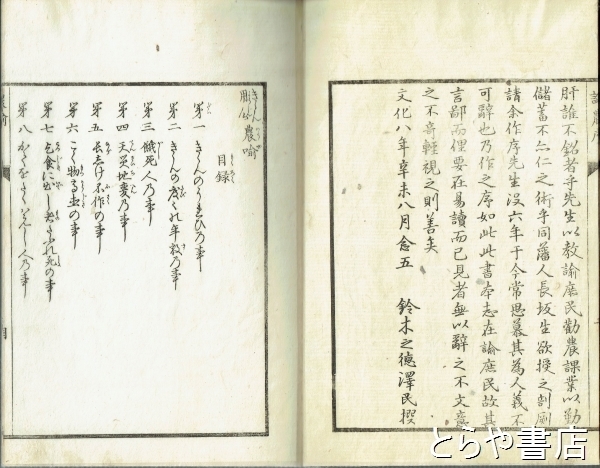 肝誰不銘者乎先生以教諭庶民勸農課業以勤
儲蓄不亦仁之術乎同藩人長坂生欲授之剞劂
請余作序先生沒六年于今常思慕其為人義不
可辭也乃作之序如此此書本志在諭庶民故其
言鄙而俚要在易讀而已見者無以辭之不文意
之不奇輕視之則善矣
文化八年辛未八月念五　鈴木之德澤民撰
農喩
目録
第一　きゝんのくるひの事
第二　きゝんの年数の事
第三　餓死人の事
第四　天災地変の事
第五　不作の事
第六　こく物の事
第七　乞食に出し死の事
第八　人の事
とらや書店